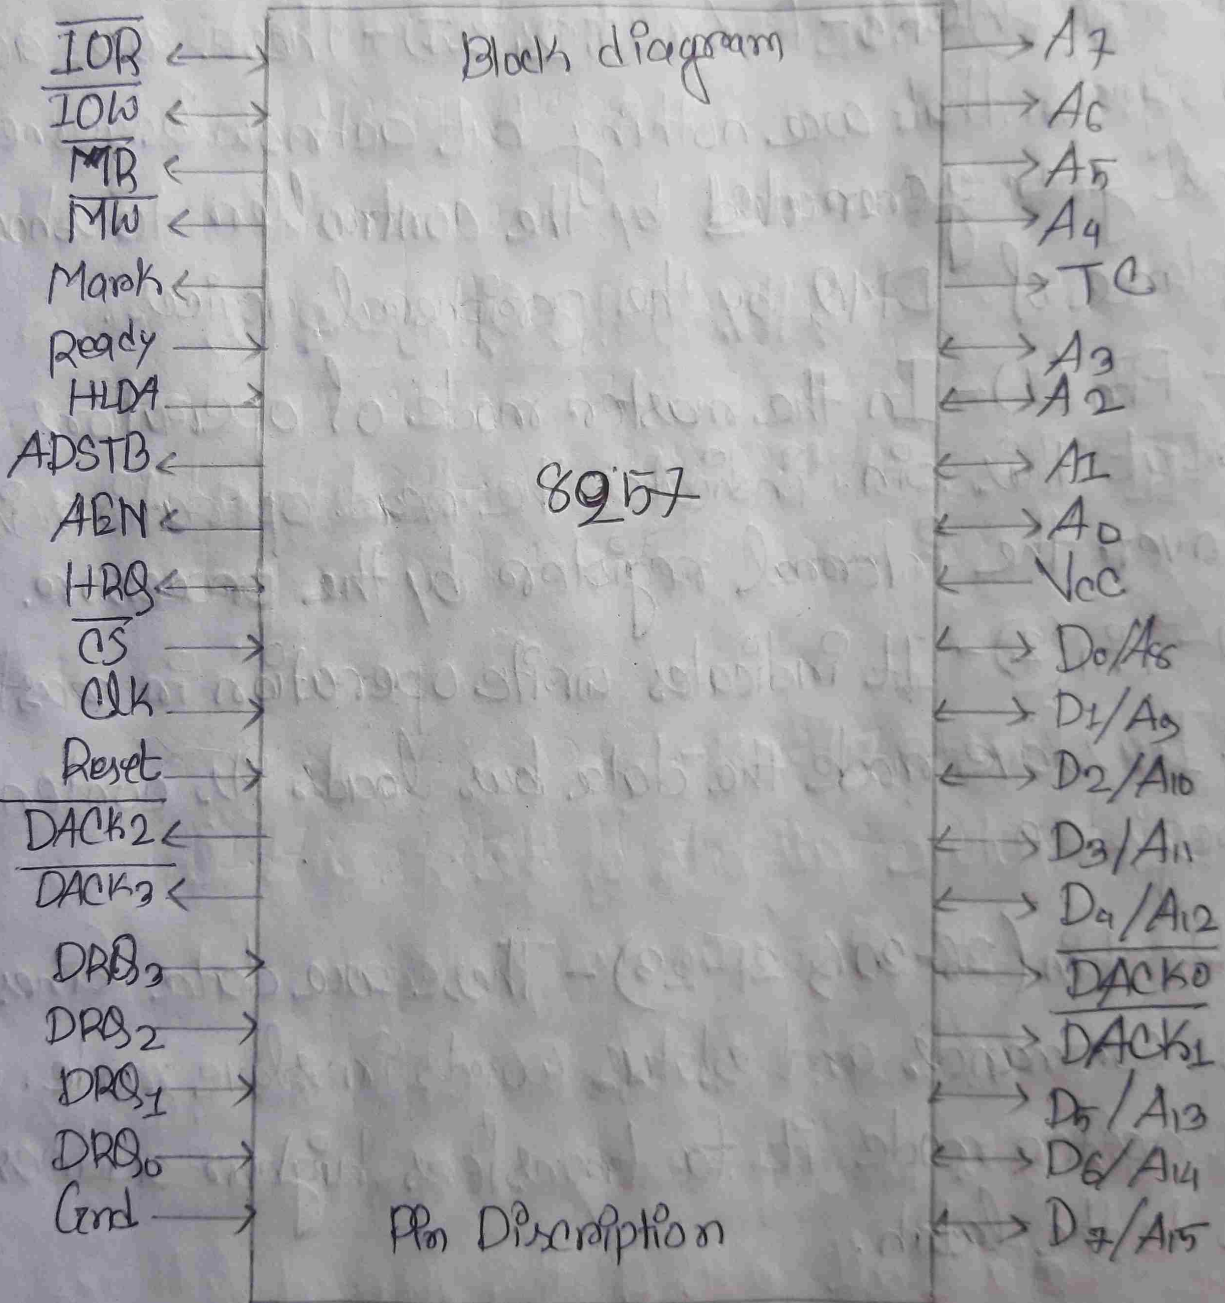 Block diagram
I̅O̅R̅
I̅O̅W̅
M̅R̅
M̅W̅
Mark
Ready
HLDA
ADSTB
AEN
HRQ
C̅S̅
Clk
Reset
D̅A̅C̅K̅2̅
D̅A̅C̅K̅3̅
DRQ3
DRQ2
DRQ1
DRQ0
Gnd
8257
Pin Discription
A7
A6
A5
A4
TC
A3
A2
A1
A0
Vcc
D0/A8
D1/A9
D2/A10
D3/A11
D4/A12
D̅A̅C̅K̅0̅
D̅A̅C̅K̅1̅
D5/A13
D6/A14
D7/A15